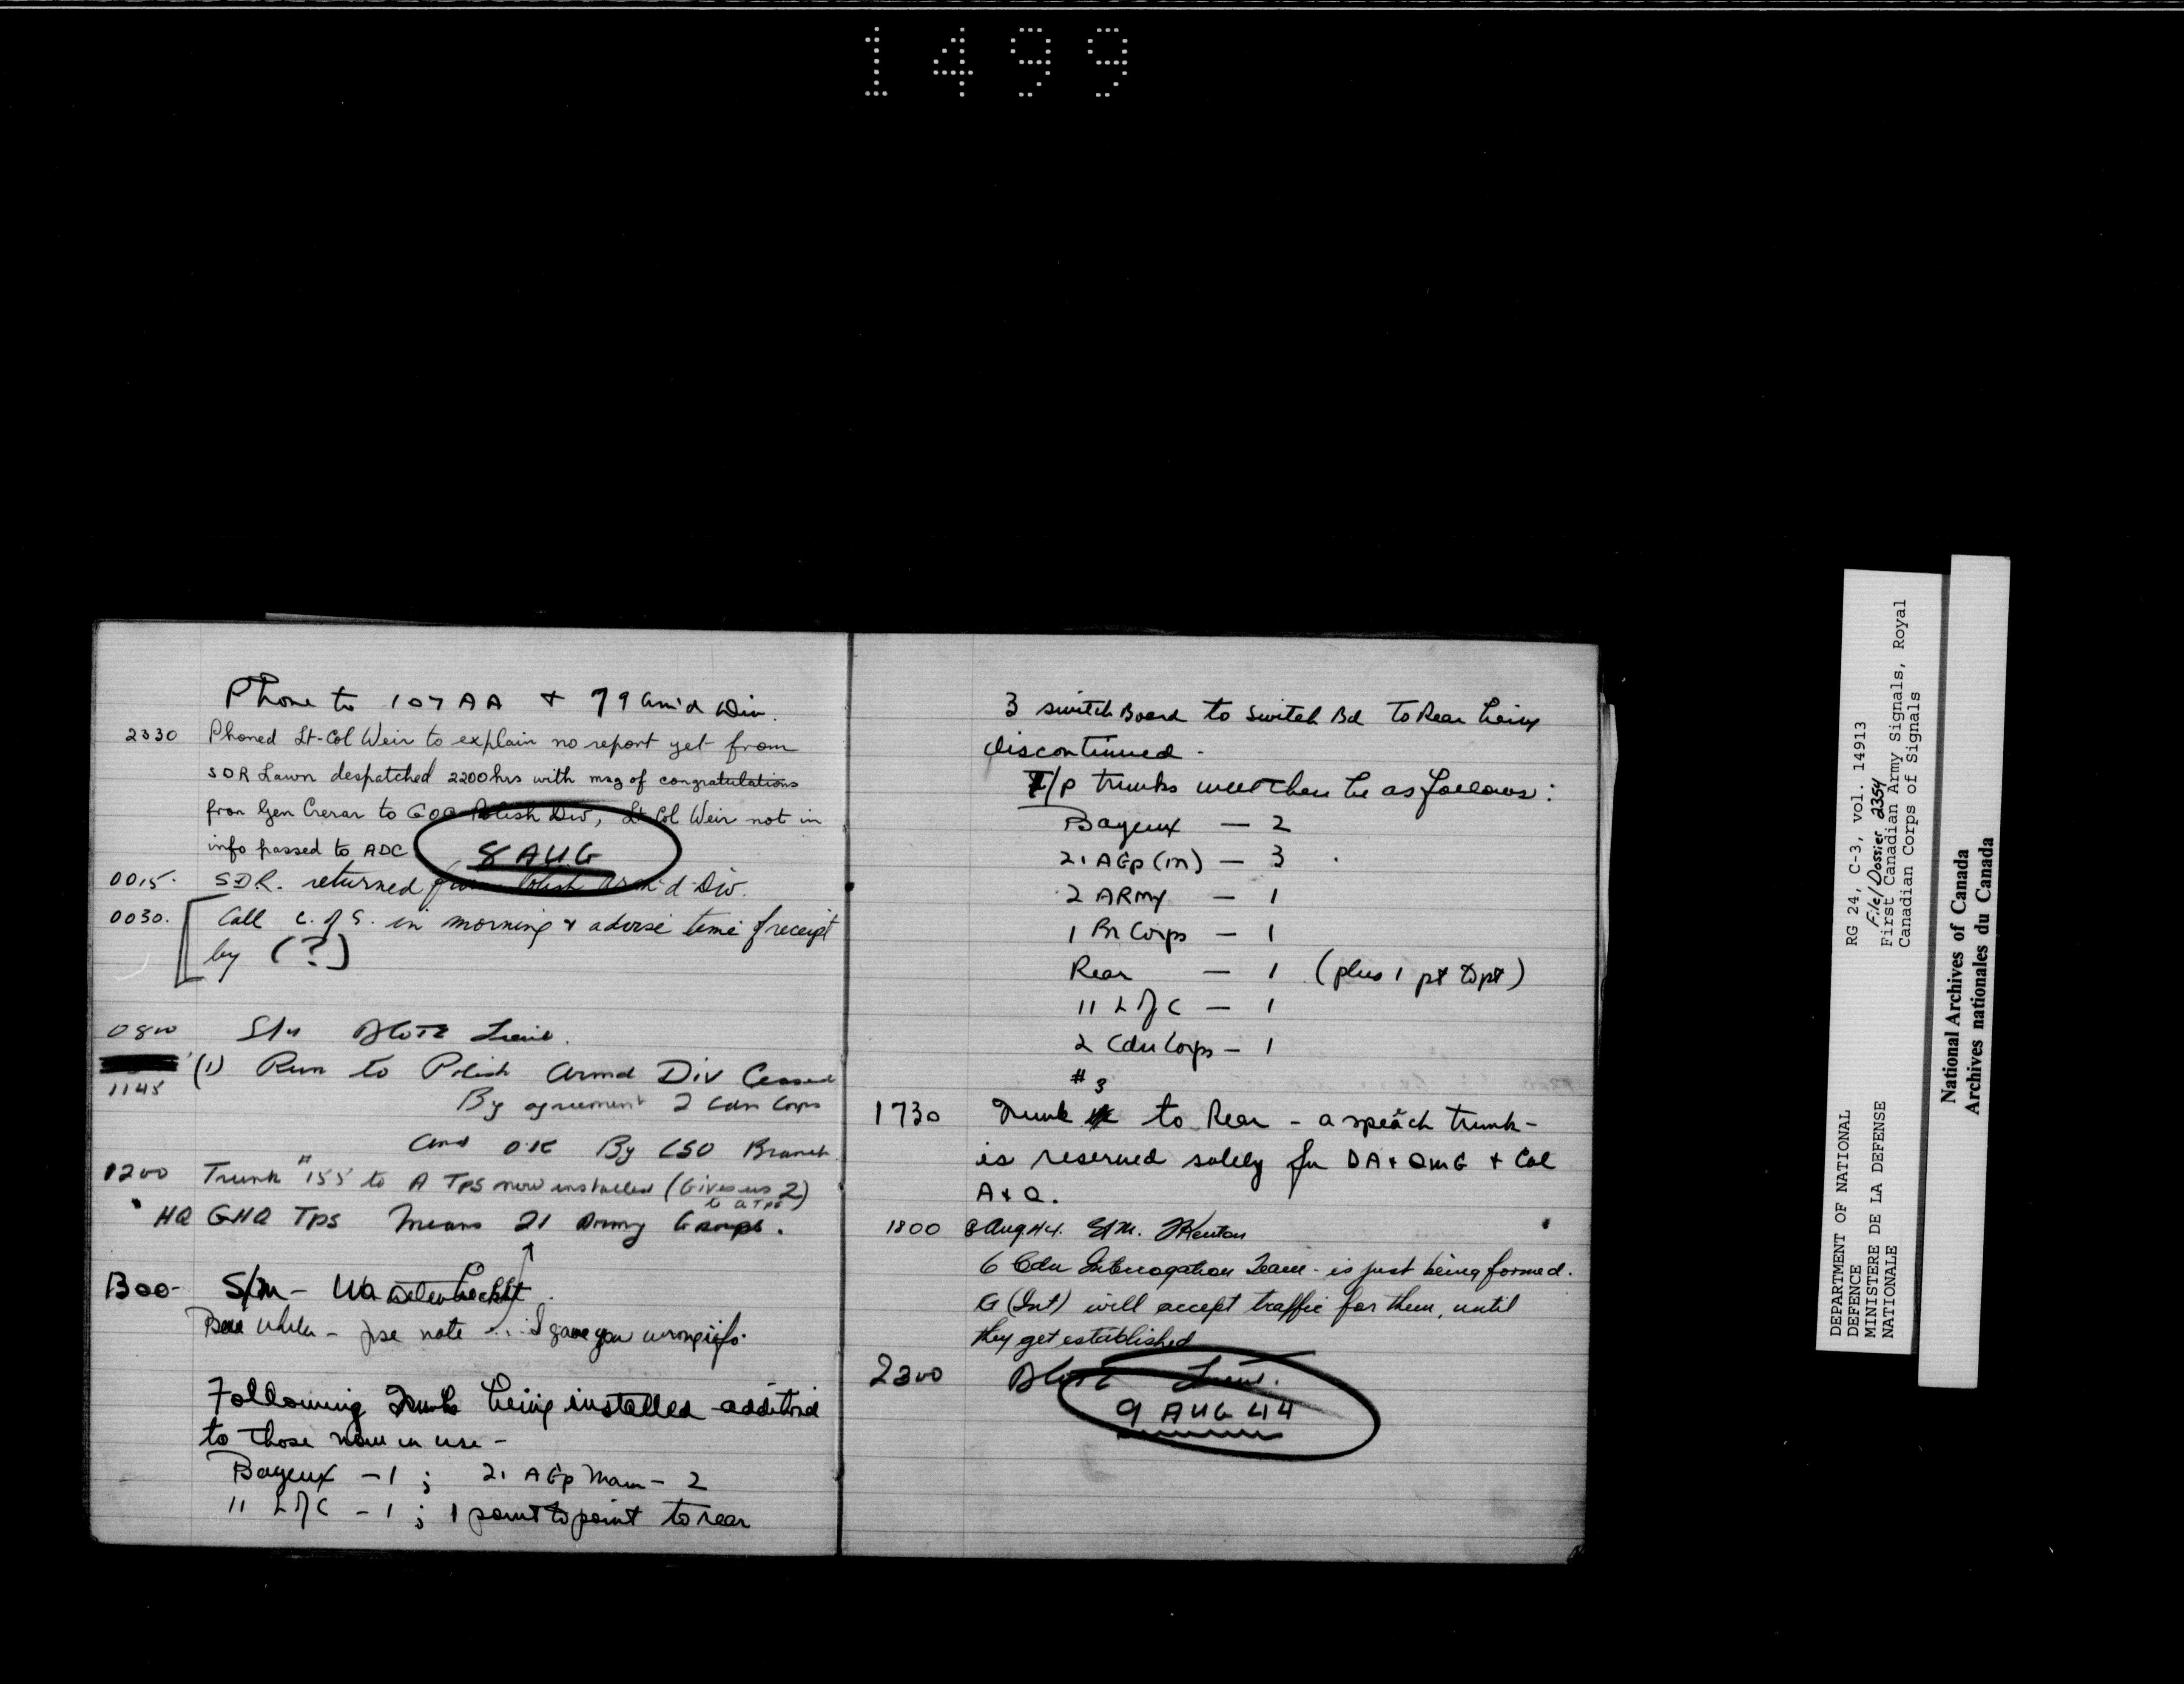 1499
Phone to 107 AA + 79 Arm'd Div.
2330 Phoned Lt-Col Weir to explain no report yet from
SDR Lawn despatched 2200hrs with msg of congratulations
from Gen Crerar to GOC Polish Div, Lt Col Weir not in
info passed to ADC
8 AUG
0015. SDR. returned from Polish Arm'd Div.
0030. Call C. of S. in morning & advise time of receipt
by (?)
0800 S/M
1145 (1) Run to Polish Armd Div Ceased
By agreement 2 Cdn Corps
and OK By CSO Branch
1200 Trunk #155 to A Tps now installed (Gives us 2)
to A Tps
HQ GHQ Tps means 21 Army Groups.
1300- S/M -
- pse note ... I gave you wrong info.
Following Trunks being installed additional
to those now in use -
Bayeux - 1 ; 21 AGp Main - 2
11 L of C - 1 ; 1 point to point to rear
3 switch Board to Switch Bd To Rear being
discontinued -
T/P trunks will then be as follows :
Bayeux — 2
21 AGp (m) — 3
2 ARmy — 1
1 Br Corps — 1
Rear — 1 (plus 1 pt to pt)
11 L of C — 1
2 Cdn Corps — 1
#3
1730 Trunk to Rear - a speach trunk -
is reserved solely for DA+QMG + Col
A + Q.
1800 8 Aug 44. S/M.
6 Cdn Interrogation Team - is just being formed.
G (Int) will accept traffic for them, until
they get established
2300
9 AUG 44
DEPARTMENT OF NATIONAL
DEFENCE
MINISTERE DE LA DEFENSE
NATIONALE
RG 24, C-3, vol. 14913
File/Dossier 2354
First Canadian Army Signals, Royal
Canadian Corps of Signals
National Archives of Canada
Archives nationales du Canada